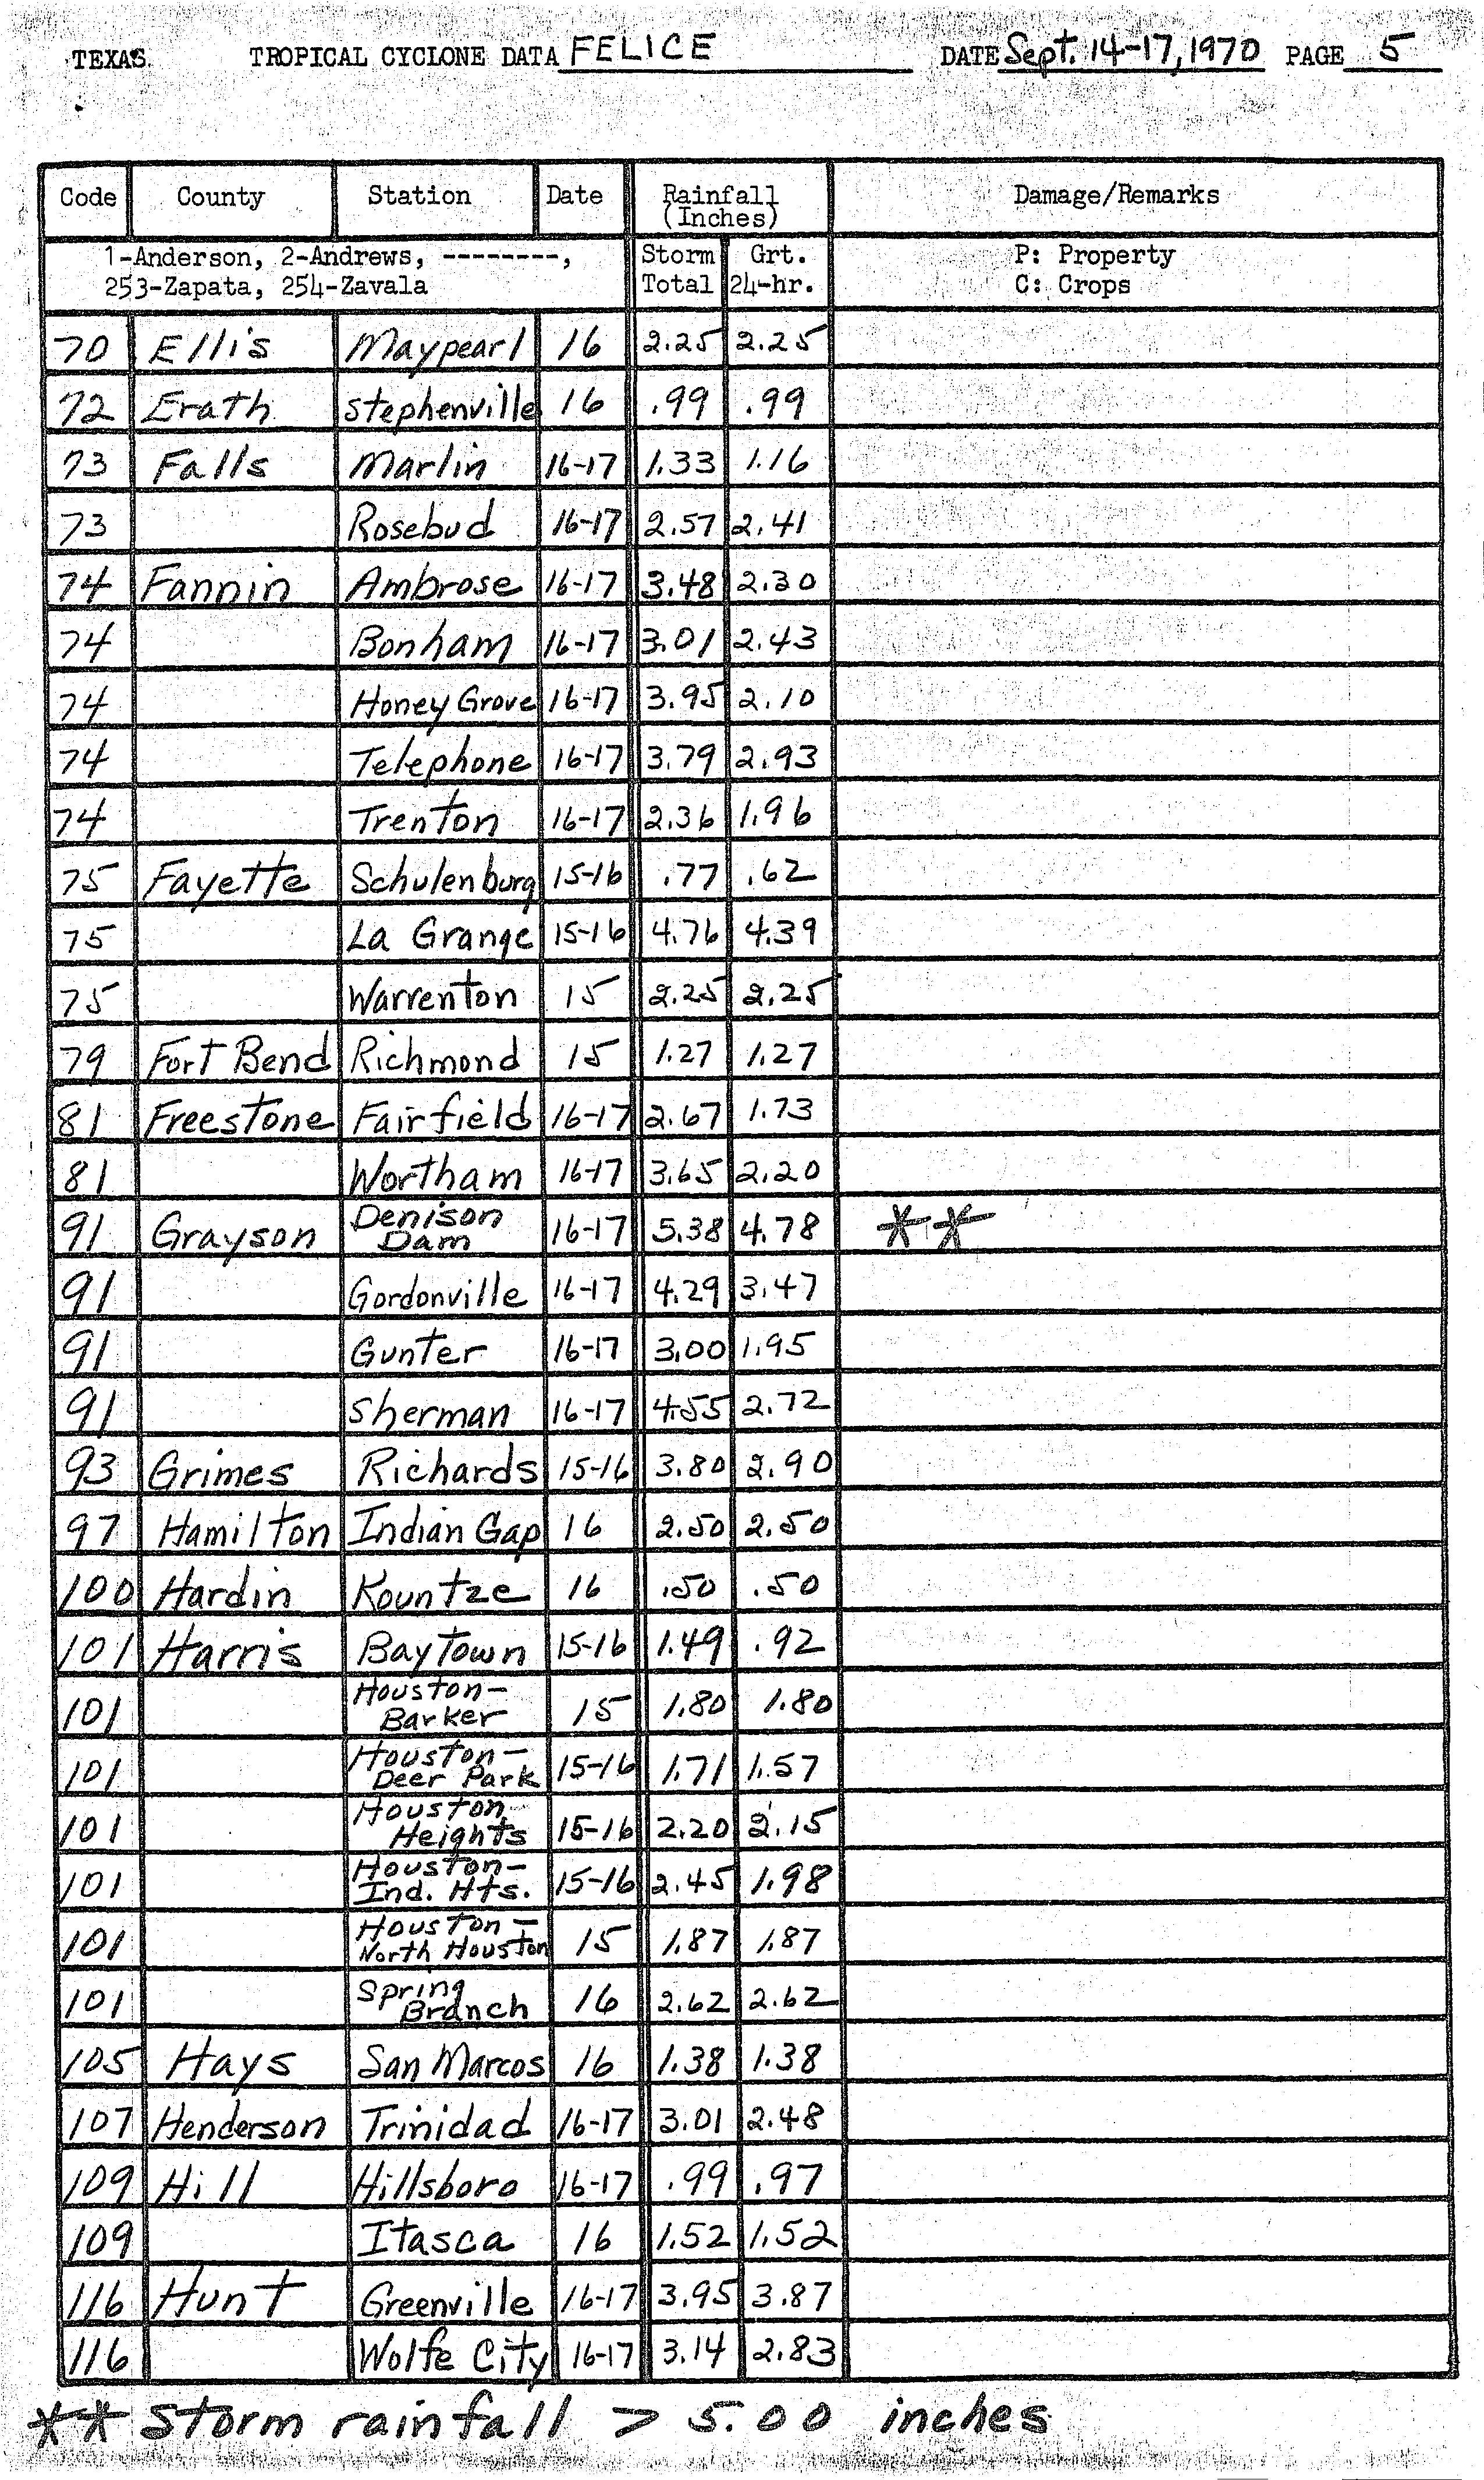 TEXAS TROPICAL CYCLONE DATA FELICE DATE Sept. 14-17, 1970 PAGE 5
Code County Station Date Rainfall (Inches) Damage/Remarks
1-Anderson, 2-Andrews, --------, Storm Grt. P: Property
253-Zapata, 254-Zavala Total 24-hr. C: Crops
70 Ellis Maypearl 16 2.25 2.25
72 Erath Stephenville 16 .99 .99
73 Falls Marlin 16-17 1.33 1.16
73 Rosebud 16-17 2.57 2.41
74 Fannin Ambrose 16-17 3.48 2.30
74 Bonham 16-17 3.01 2.43
74 Honey Grove 16-17 3.95 2.10
74 Telephone 16-17 3.79 2.93
74 Trenton 16-17 2.36 1.96
75 Fayette Schulenburg 15-16 .77 .62
75 La Grange 15-16 4.76 4.39
75 Warrenton 15 2.25 2.25
79 Fort Bend Richmond 15 1.27 1.27
81 Freestone Fairfield 16-17 2.67 1.73
81 Wortham 16-17 3.65 2.20
91 Grayson Denison Dam 16-17 5.38 4.78 **
91 Gordonville 16-17 4.29 3.47
91 Gunter 16-17 3.00 1.95
91 Sherman 16-17 4.55 2.72
93 Grimes Richards 15-16 3.80 2.90
97 Hamilton Indian Gap 16 2.50 2.50
100 Hardin Kountze 16 .50 .50
101 Harris Baytown 15-16 1.49 .92
101 Houston-Barker 15 1.80 1.80
101 Houston-Deer Park 15-16 1.71 1.57
101 Houston Heights 15-16 2.20 2.15
101 Houston-Ind. Hts. 15-16 2.45 1.98
101 Houston-North Houston 15 1.87 1.87
101 Spring Branch 16 2.62 2.62
105 Hays San Marcos 16 1.38 1.38
107 Henderson Trinidad 16-17 3.01 2.48
109 Hill Hillsboro 16-17 .99 .97
109 Itasca 16 1.52 1.52
116 Hunt Greenville 16-17 3.95 3.87
116 Wolfe City 16-17 3.14 2.83
** Storm rainfall > 5.00 inches